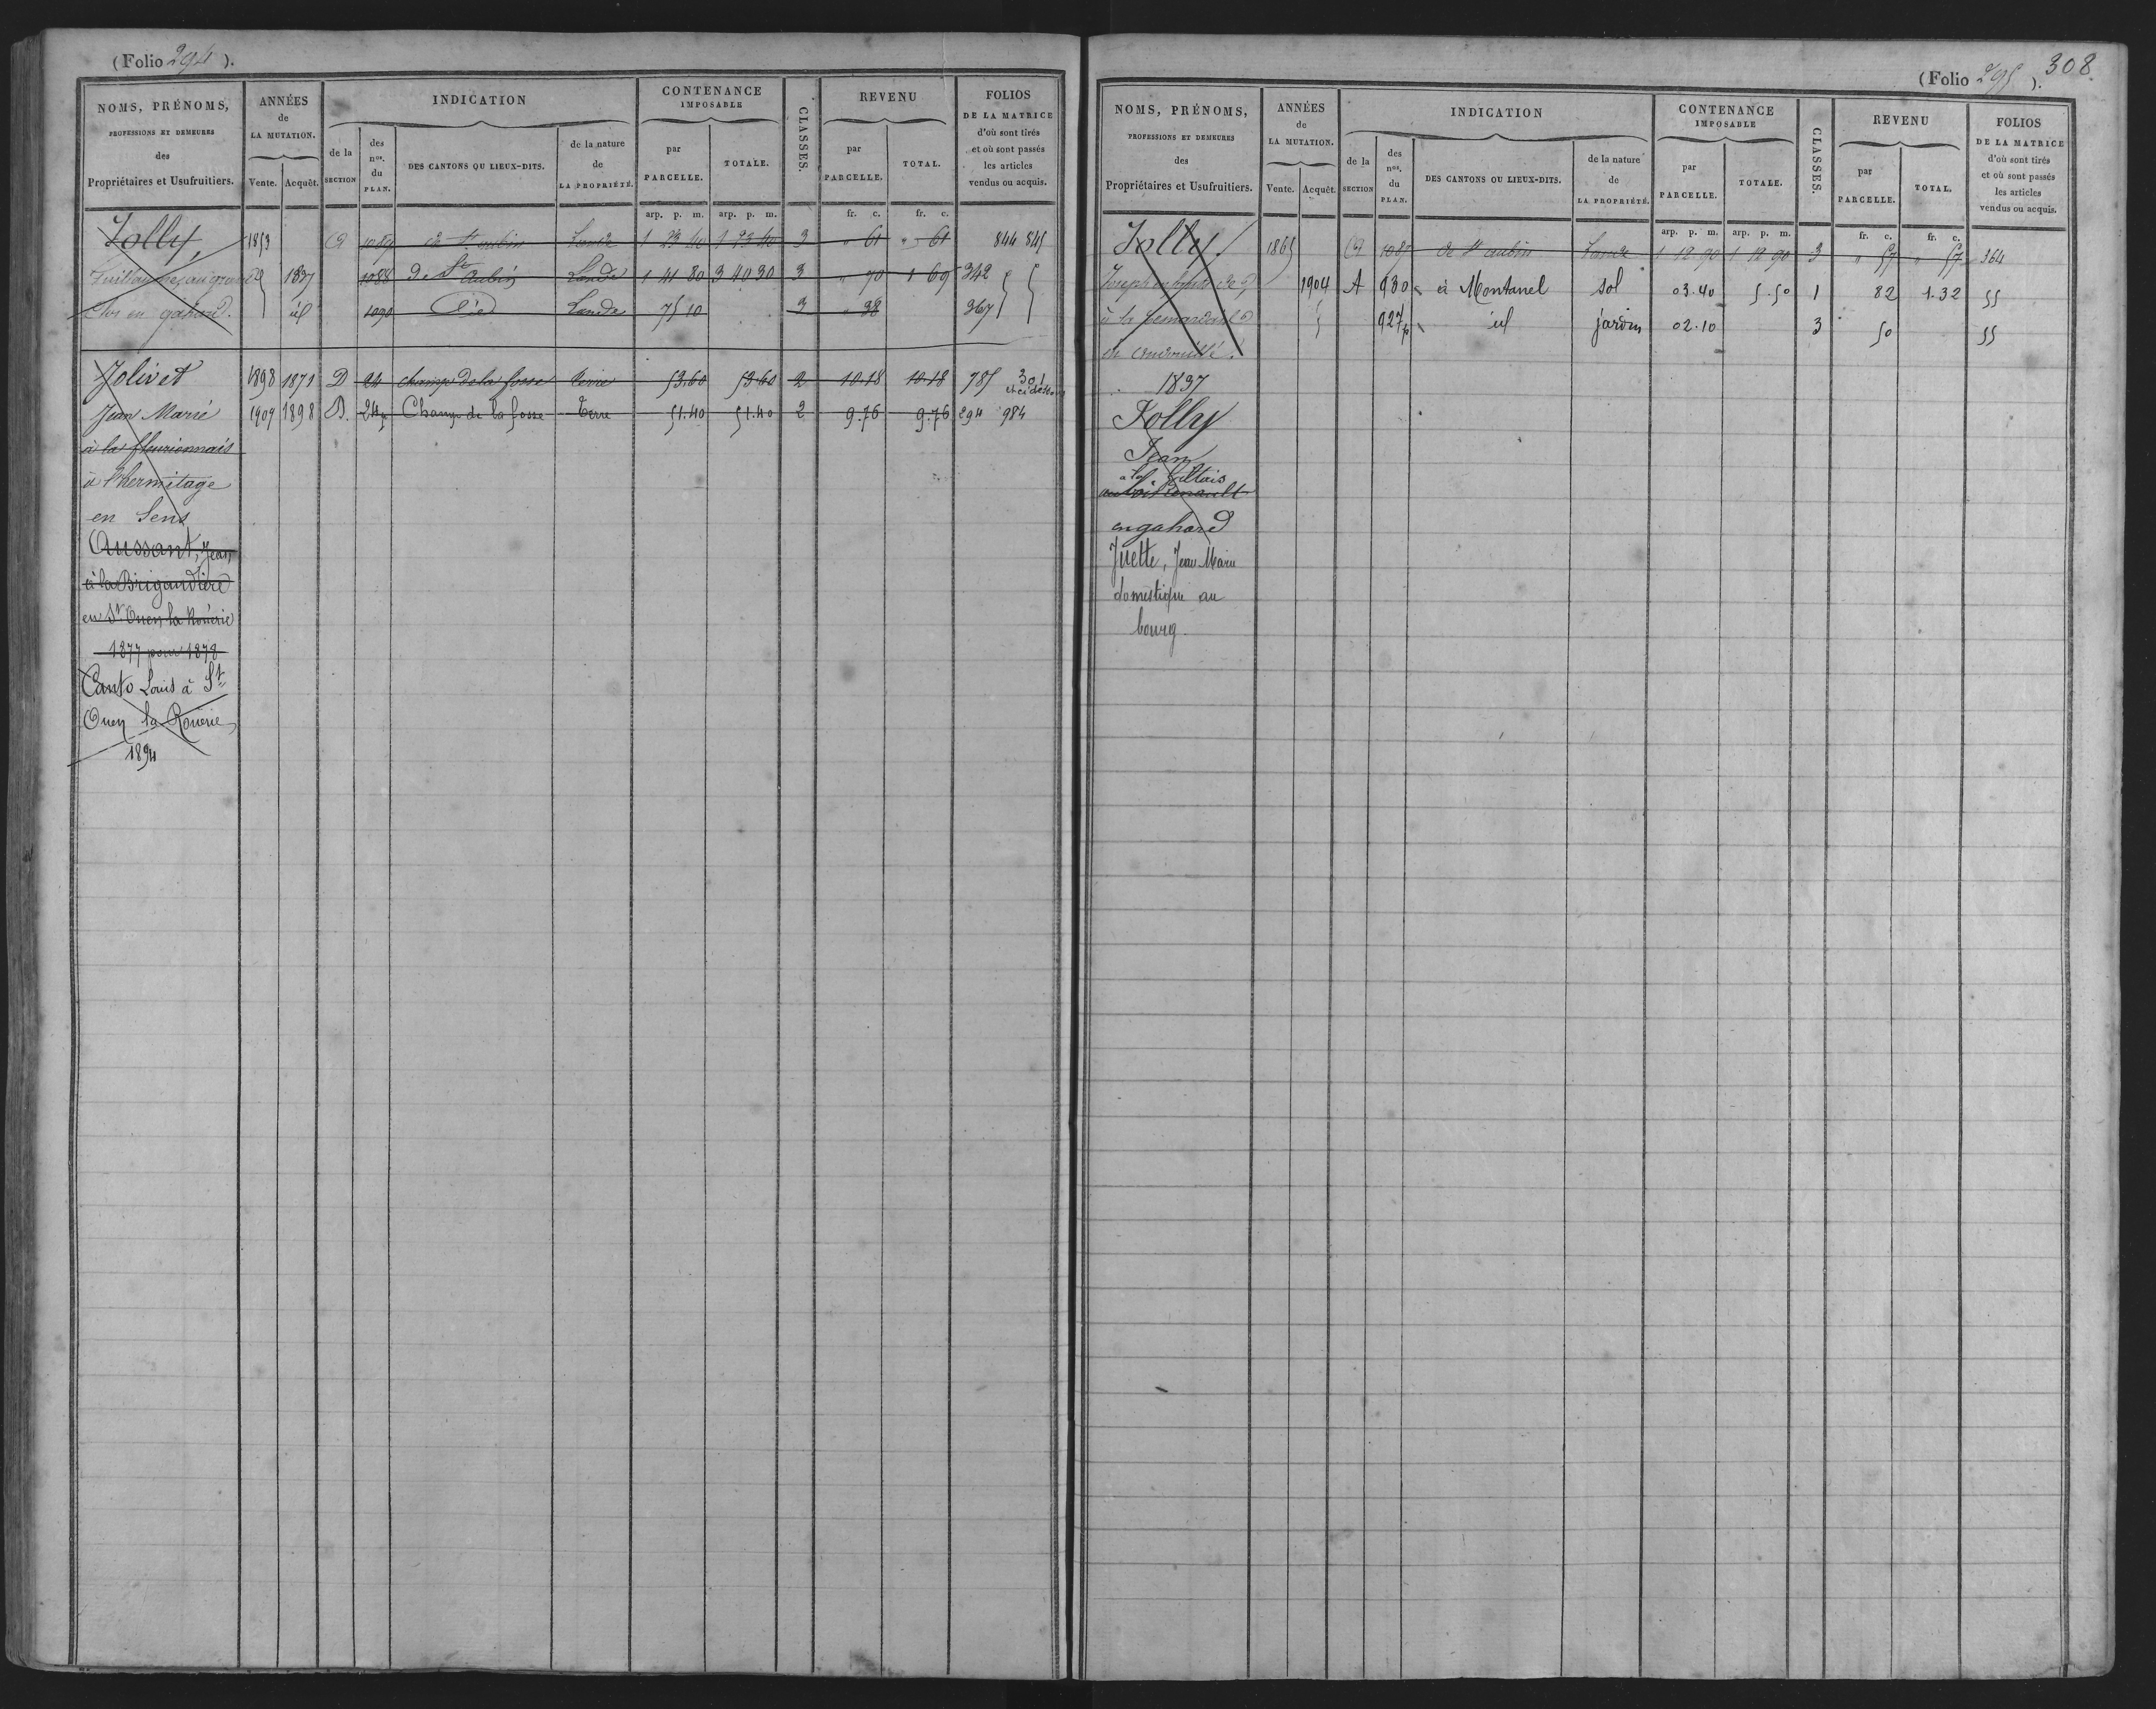 (Folio 294 ).
NOMS, PRÉNOMS,
PROFESSIONS ET DEMEURES
des
Propriétaires et Usufruitiers.
ANNÉES
de
LA MUTATION.
Vente. Acquêt.
INDICATION
de la
SECTION
des
nos.
du
PLAN.
DES CANTONS OU LIEUX-DITS.
de la nature
de
LA PROPRIÉTÉ.
CONTENANCE
IMPOSABLE
par
PARCELLE.
TOTALE.
CLASSES.
REVENU
par
PARCELLE.
TOTAL.
FOLIOS
DE LA MATRICE
d'où sont tirés
et où sont passés
les articles
vendus ou acquis.
arp. p. m. arp. p. m. fr. c. fr. c.
Jolly, 1853 1089 de St aubin Lande 1 23 40 1 23 40 3 " 61 " 61 844 845
1837 1088 de St Aubin Lande 1 41 80 3 40 30 3 " 70 1 69 342
clos en gahard. id 1090 Lande 75 10 3 " 38 367
Jolivet 1898 1871 D 24 champ de la fosse terre 53.60 53.60 2 10.18 10.18 785 301
Jean Marie 1909 1898 D. 24p Champ de la fosse Terre 51.40 51.40 2 9.76 9.76 294 984
à la fleurionnais
à l'hermitage
en Sens
Aussant, Jean
à la Brigandière
en St Ouen la Rouërie
1877 pour 1878
Canto Louis à St
Ouen la Rouërie
1894
308.
(Folio 295 ).
NOMS, PRÉNOMS,
PROFESSIONS ET DEMEURES
des
Propriétaires et Usufruitiers.
ANNÉES
de
LA MUTATION.
Vente. Acquêt.
INDICATION
de la
SECTION
des
nos.
du
PLAN.
DES CANTONS OU LIEUX-DITS.
de la nature
de
LA PROPRIÉTÉ.
CONTENANCE
IMPOSABLE
par
PARCELLE.
TOTALE.
CLASSES.
REVENU
par
PARCELLE.
TOTAL.
FOLIOS
DE LA MATRICE
d'où sont tirés
et où sont passés
les articles
vendus ou acquis.
arp. p. m. arp. p. m. fr. c. fr. c.
Jolly 1865 1087 de St aubin Lande 1 12 90 1 12 90 3 " 57 " 57 364
Joseph 1904 A 930 à Montanel sol 03.40 5.50 1 82 1.32 55
à la 927p id jardin 02.10 3 50 55
en
1837
Jolly
Jean
à la
en gahard
Juette, Jean Marie
domestique au
bourg.